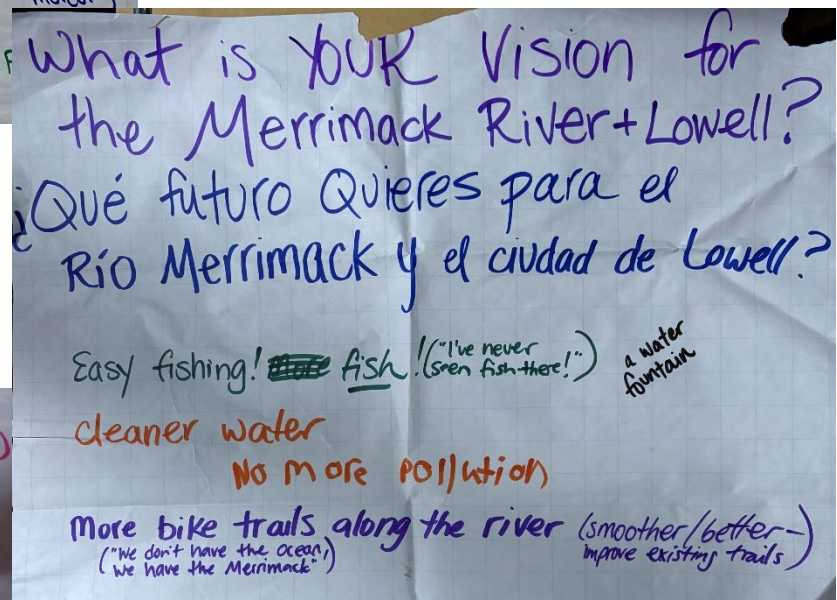 What is YOUR Vision for
the Merrimack River + Lowell?
¿Qué futuro Quieres para el
Río Merrimack y el ciudad de Lowell?
Easy fishing! fish! ("I've never
seen fish there!")
a water
fountain
cleaner water
No more pollution
More bike trails along the river (smoother/better-
improve existing trails)
("We don't have the ocean,
we have the Merrimack")